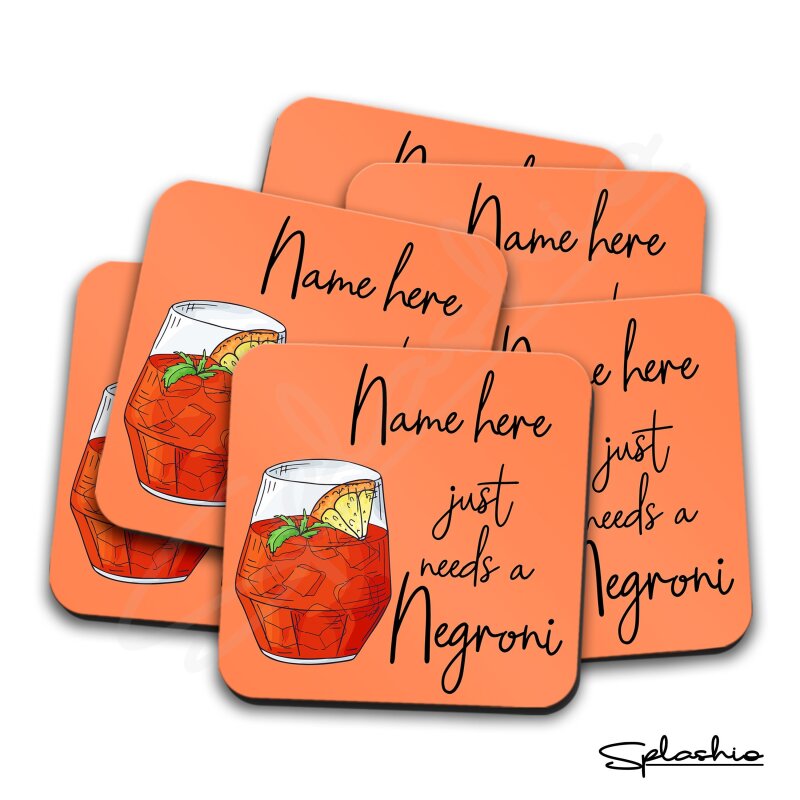 Name here
Name here
Name here
just
needs a
Negroni
here
just
needs a
Negroni
Splashio